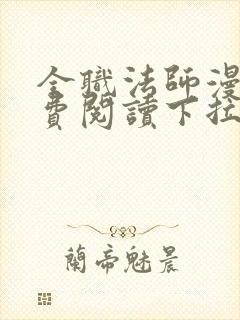 全職法師漫
費閱讀下拉
蘭帝魅晨